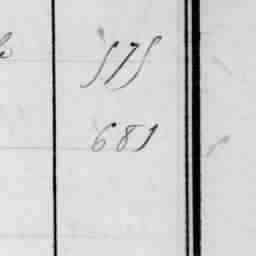 575
681